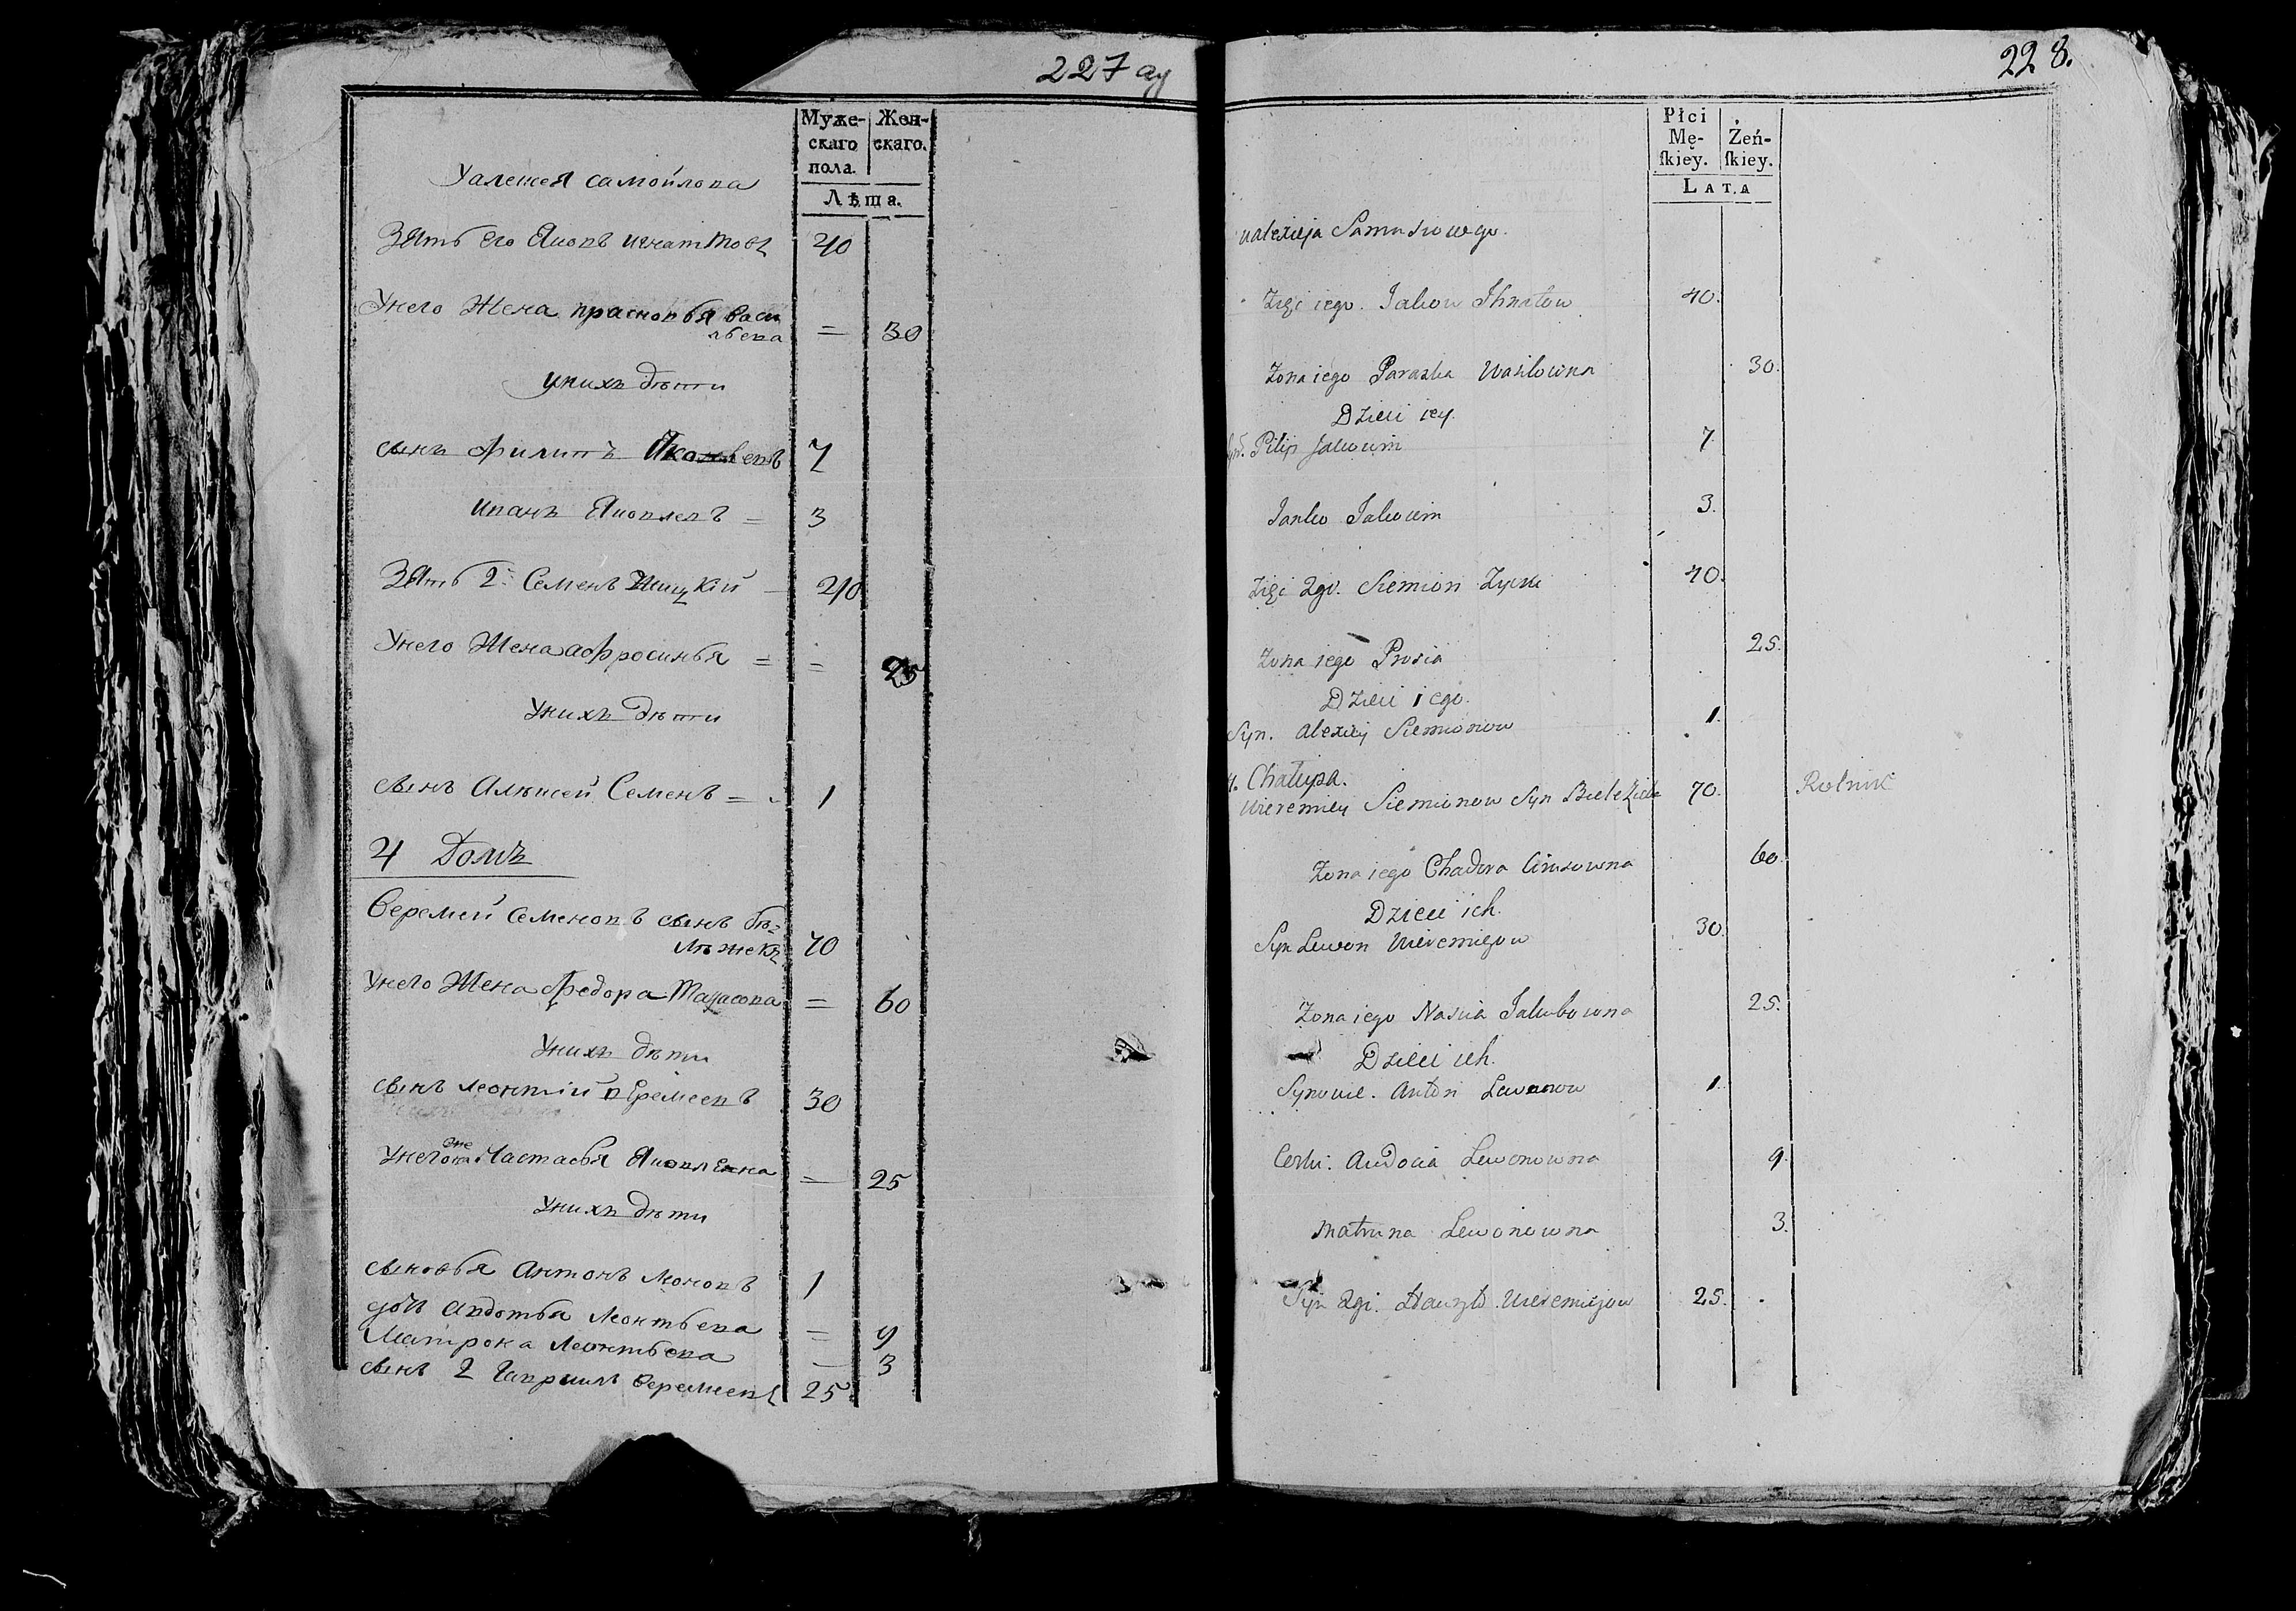 227 ау
Муже- Жен-
скаго скаго.
пола.
Лѣта.
Уалежея самойлова
Зять его Яковъ игнатовъ 40
Унего Жена прасковья васи
льева = 30
унихъ дѣти
сынъ филипъ Яковлевъ 7
иванъ Яковлевъ = 3
Зять 2й Семенъ Жицкій 40
Унего Жена афросинья = = 25
Унихъ дѣти
сынъ Алѣксей Семенъ = 1
4 Домъ
Веремей семеновъ сынъ бѣ=
лѣжекъ 70
Унего Жена федора Тарасова = 60
Унихъ дѣти
сынъ леонтій вЕремеевъ 30
Унего жена Настасья Яковлевна = 25
Унихъ дѣти
сыновья Антонъ леоновъ 1
дочь Авдотья Леонтьева = 9
Матрона Леонтьева — 3
сынъ 2 Гавриилъ веремеевъ 25
228.
Płci
Mę- Żeń-
ſkiey. ſkiey.
LATA
ualexieja Samusiowego.
Zięć iego. Jakow Ihnatow 40.
Zona iego Paraska Wasilowna 30.
Dzieci iey.
Syn. Pilip Jakowim 7
Janko Jakowim 3.
Zięć 2gi. Siemion Zycki 40.
Zona iego Prosia 25.
Dzieci iego.
Syn. Alexiey Siemionow 1.
4. Chałupa.
Wieremiey Siemionow Syn 70. Rolnik
Zona iego Chadora 60.
Dzieci ich.
Syn Lewon Wieremiejow 30.
Zona iego Nascia Jakubowna 25.
Dzieci ich.
Synowie. Anton Lewonow 1.
Corki. Audocia Lewonowna 9.
Matruna Lewonowna 3.
Syn 2gi. Hauryło Wieremiejow 25.